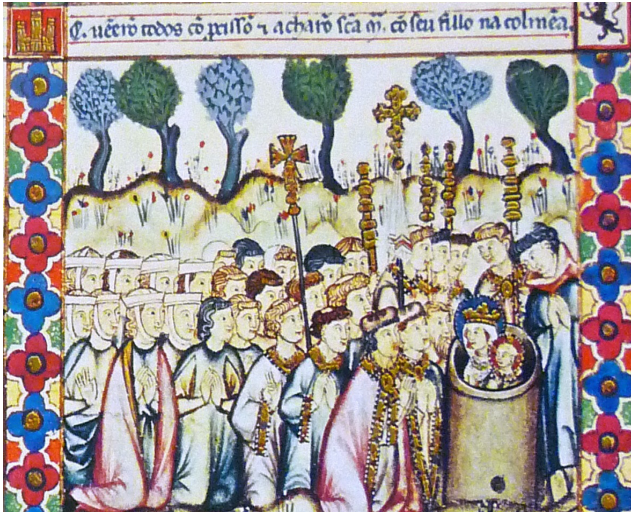 C. uẽerõ todos cõ p̃cissõ ⁊ acharõ sc̃a m̃. cõ seu fillo na colmẽa.